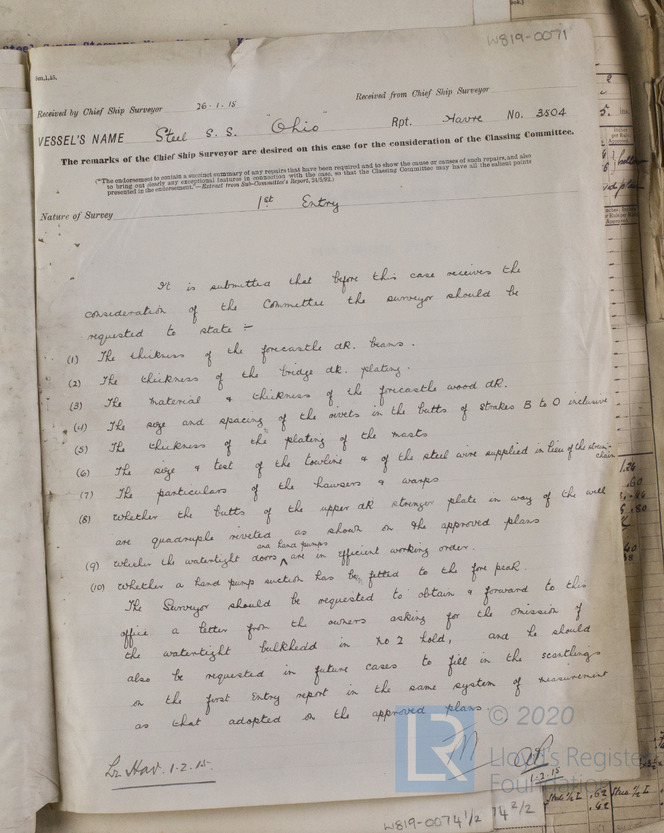 W819-0071
Received by Chief Ship Surveyor 26-1-15
Received from Chief Ship Surveyor
VESSEL'S NAME Steel S.S. "Ohio" Rpt. Havre No. 3504
The remarks of the Chief Ship Surveyor are desired on this case for the consideration of the Classing Committee.
(*The endorsement to contain a succinct summary of any repairs that have been required and to show the cause or causes of such repairs, and also
to bring out clearly any exceptional features in connection with the case, so that the Classing Committee may have all the salient points
presented in the endorsement."—Extract from Sub-Committee's Report, 24/5/92.)
Nature of Survey 1st Entry
It is submitted that before this case receives the
consideration of the Committee the surveyor should be
requested to state :-
(1) The thickness of the forecastle dk. beams.
(2) The thickness of the bridge dk. plating.
(3) The material & thickness of the forecastle wood dk.
(4) The size and spacing of the rivets in the butts of strakes B to O inclusive
(5) The thickness of the plating of the masts
(6) The size & test of the towline & of the steel wire supplied in lieu of the stream chain
(7) The particulars of the hawsers & warps
(8) Whether the butts of the upper dk stringer plate in way of the well
are quadruple riveted as shown on the approved plans
(9) Whether the watertight doors and hand pumps are in efficient working order.
(10) Whether a hand pump suction has be fitted to the fore peak.
The Surveyor should be requested to obtain & forward to this
office a letter from the owners asking for the omission of
the watertight bulkhead in No 2 hold, and he should
also be requested in future cases to fill in the scantlings
on the first Entry report in the same system of measurement
as that adopted on the approved plans.
Lr Hav. 1-2-15.
1-2-15
LR © 2020
Lloyd's Register
Foundation
W819-0074 1/2
74 2/2